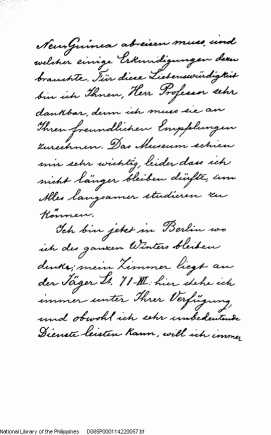 Neu Guinea abreisen muss, und
welcher einige Erkundigungen dazu
brauchte. Für diese Liebenswürdigkeit
bin ich Ihnen, Herr Professor sehr
dankbar, denn ich muss sie an
Ihren freundlichen Empfelungen
zurechnen. Das Museum schien
mir sehr wichtig, leider dass ich
nicht länger bleiben dürfte, um
Alles langsamer studieren zu
können.
Ich bin jetzt in Berlin wo
ich des ganzen Winters bleiben
denke; mein Zimmer liegt an
der Jäger St. 71-III. hier stehe ich
immer unter Ihrer Verfügung,
und obwohl ich sehr unbedeutende
Dienste leisten kann, will ich immer
National Library of the Philippines